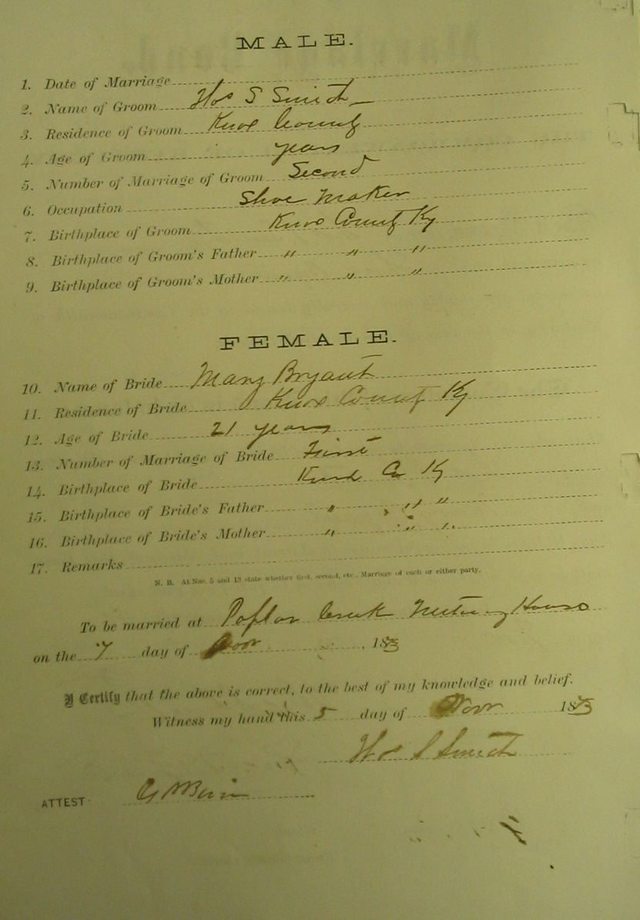 MALE.
1. Date of Marriage
2. Name of Groom S Smith
3. Residence of Groom Knox County
4. Age of Groom years
5. Number of Marriage of Groom Second
6. Occupation Shoe Maker
7. Birthplace of Groom Knox County Ky
8. Birthplace of Groom's Father " " "
9. Birthplace of Groom's Mother " " "
FEMALE.
10. Name of Bride Mary Bryant
11. Residence of Bride Knox County Ky
12. Age of Bride 21 years
13. Number of Marriage of Bride First
14. Birthplace of Bride Co Ky
15. Birthplace of Bride's Father " " "
16. Birthplace of Bride's Mother " " "
17. Remarks
N. B. At Nos. 5 and 13 state whether first, second, etc., Marriage of each or either party.
To be married at Poplar Creek Meeting House
on the 7 day of Nov , 18
I Certify that the above is correct, to the best of my knowledge and belief.
Witness my hand this 5 day of Nov 18
S Smith
ATTEST